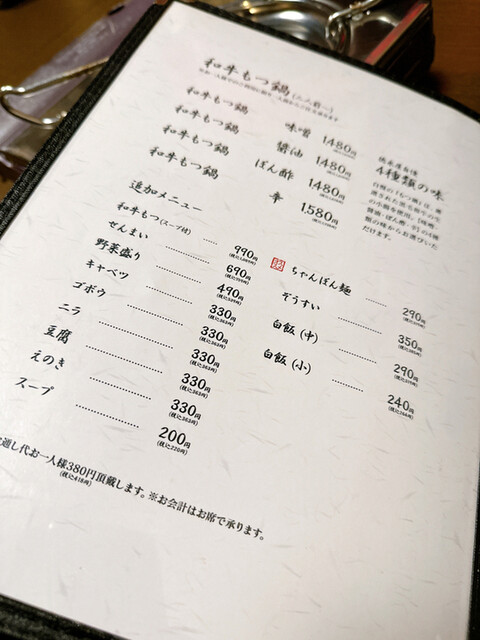 和牛もつ鍋(二人前〜)
和牛もつ鍋 味噌 1.480円
和牛もつ鍋 醤油 1.480円
和牛もつ鍋 ぽん酢 1.480円
和牛もつ鍋 辛 1.580円
4種類の味
追加メニュー
和牛もつ(スープ付) 990円
(税込1,089円)
ぜんまい 690円
野菜盛り 490円
キャベツ 330円
(税込363円)
ゴボウ 330円
(税込363円)
ニラ 330円
(税込363円)
豆腐 330円
(税込363円)
えのき 330円
(税込363円)
スープ 200円
(税込220円)
ちゃんぽん麺 290円
ぞうすい 350円
白飯(中) 290円
白飯(小) 240円
通し代お一人様380円頂戴します。※お会計はお席で承ります。
(税込418円)